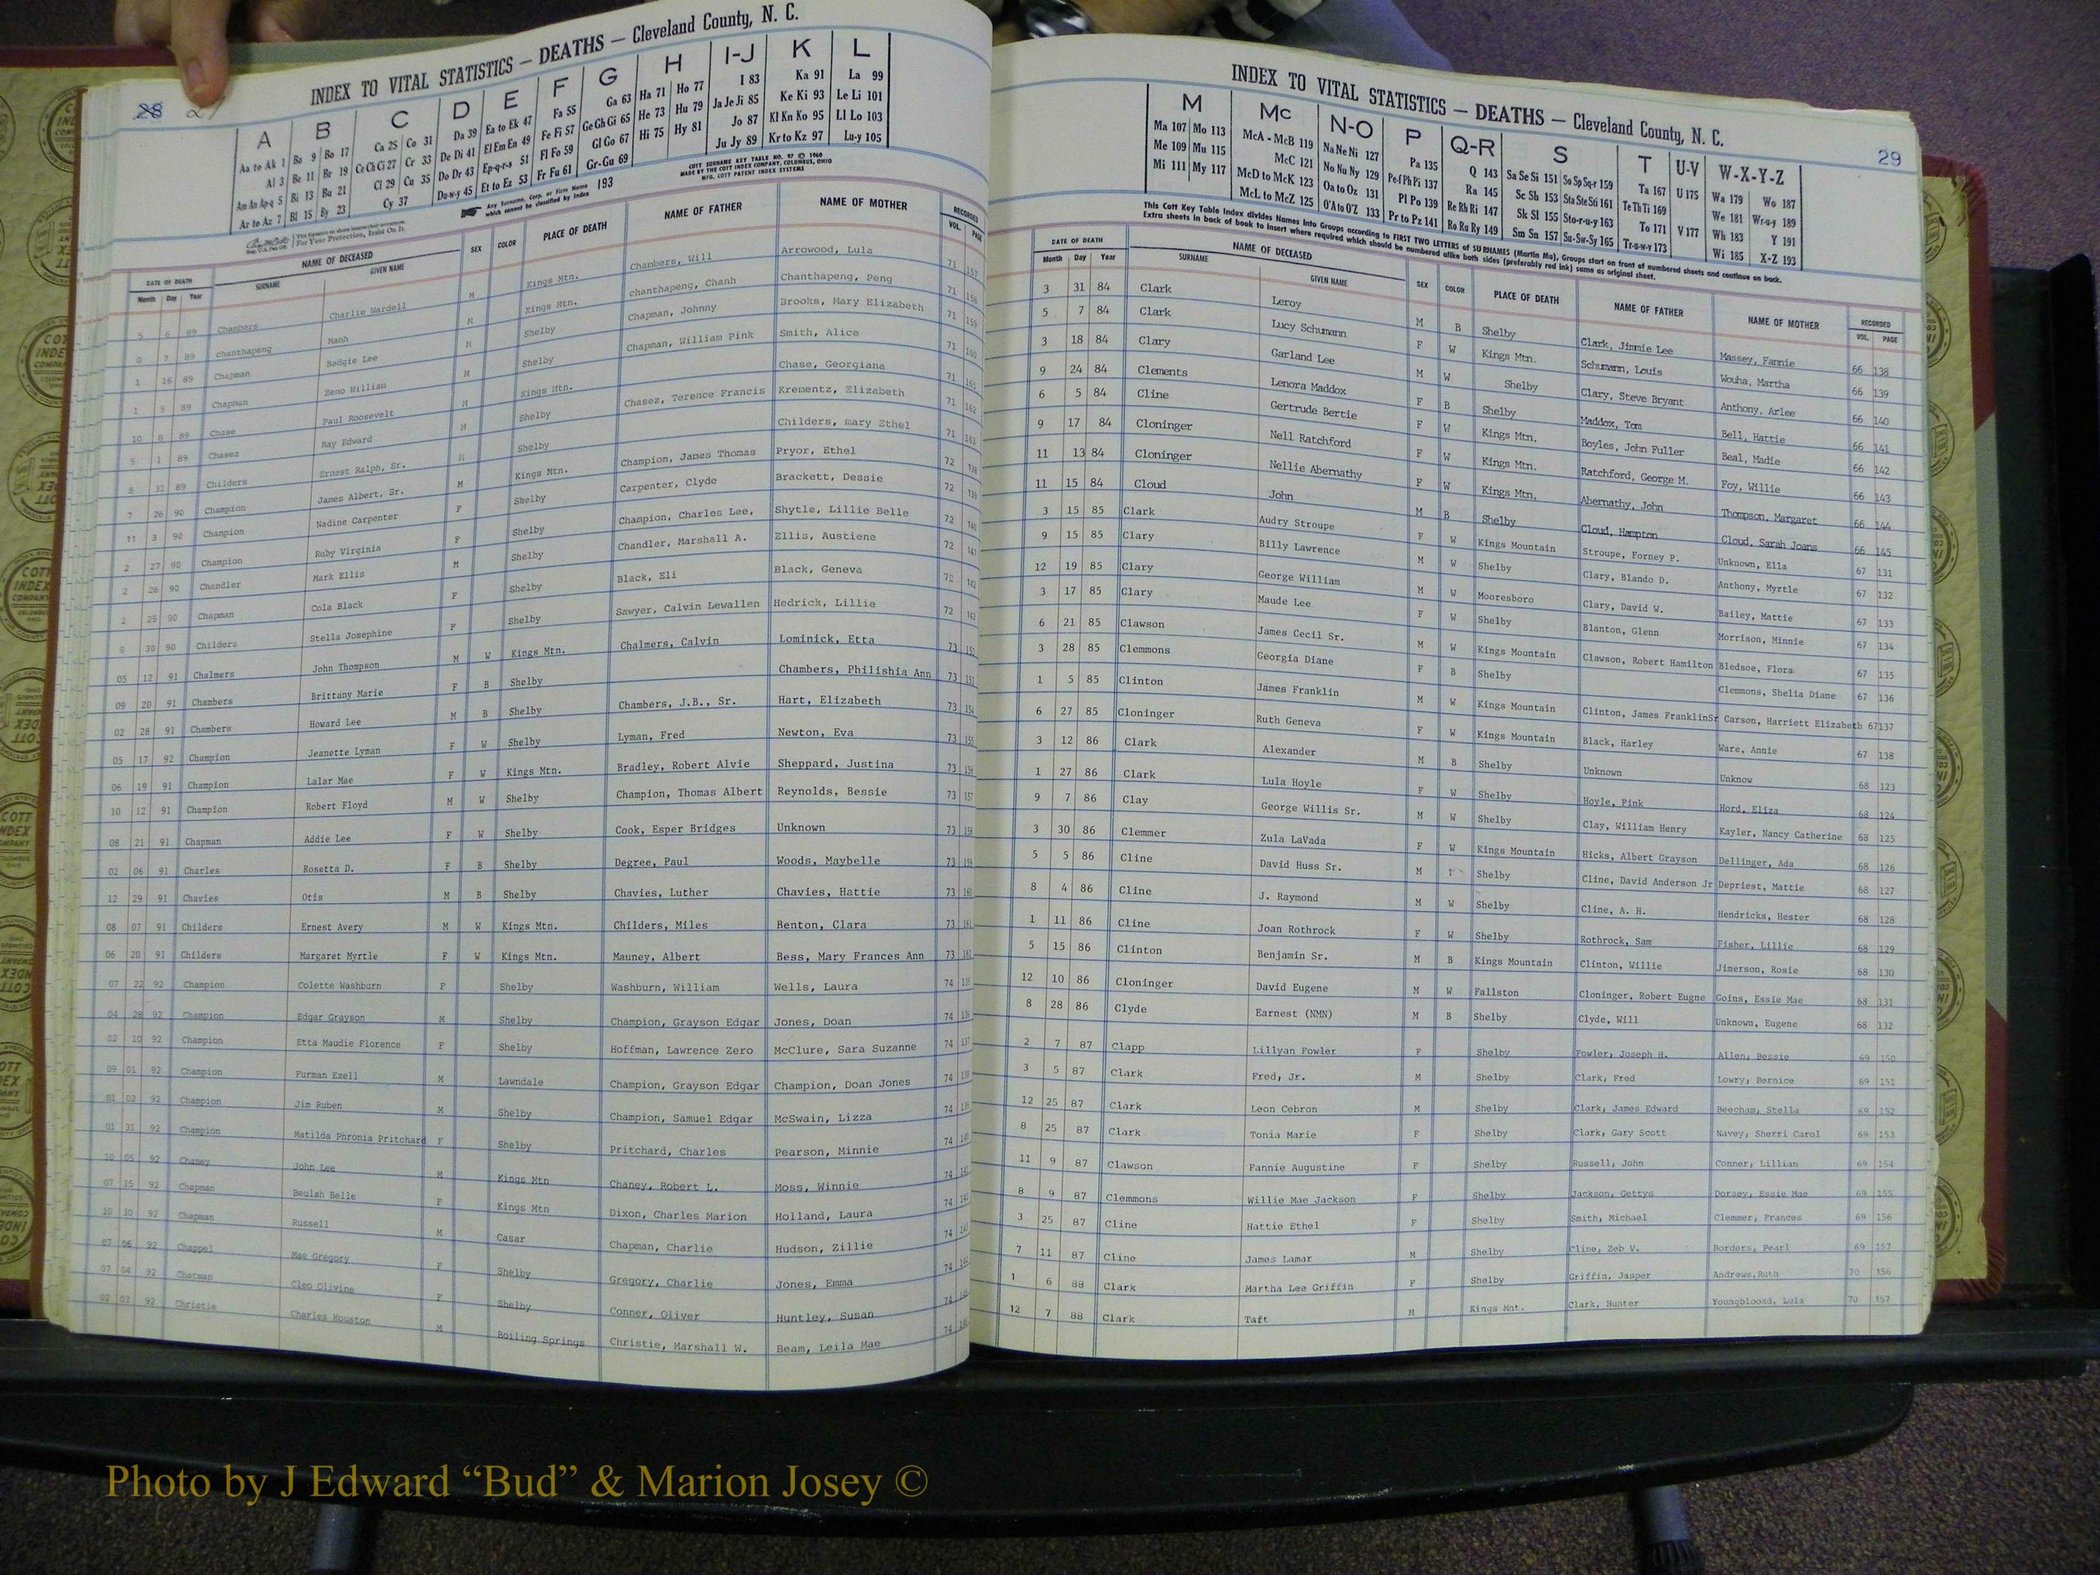 INDEX TO VITAL STATISTICS — DEATHS — Cleveland County, N. C.
28
A B C D E F G H I-J K L
Aa to Ak 1 Ba 9 Bo 17 Ca 25 Co 31 Da 39 Ea to Ek 47 Fa 55 Ga 63 Ha 71 Ho 77 I 83 Ka 91 La 99
Al 3 Be 11 Br 19 Ce Ch Ci 27 Cr 33 De Di 41 El Em En 49 Fe Fi 57 Ge Gh Gi 65 He 73 Hu 79 Ja Je Ji 85 Ke Ki 93 Le Li 101
Am An Ap-q 5 Bi 13 Bu 21 Cl 29 Cu 35 Do Dr 43 Ep-q-r-s 51 Fl Fo 59 Gl Go 67 Hi 75 Hy 81 Jo 87 Kl Kn Ko 95 Ll Lo 103
Ar to Az 7 Bl 15 By 23 Cy 37 Du-w-y 45 Et to Ez 53 Fr Fu 61 Gr-Gu 69 Ju Jy 89 Kr to Kz 97 Lu-y 105
Any Surname, Corp. or Firm Name which cannot be classified by Index 193
COTT SURNAME KEY TABLE NO. 97 © 1960
MADE BY THE COTT INDEX COMPANY, COLUMBUS, OHIO
MFG. COTT PATENT INDEX SYSTEMS
For Your Protection, Insist On It.
DATE OF DEATH NAME OF DECEASED SEX COLOR PLACE OF DEATH NAME OF FATHER NAME OF MOTHER RECORDED
Month Day Year SURNAME GIVEN NAME VOL. PAGE
5 6 89 Chambers Charlie Wardell M Kings Mtn. Chambers, Will Arrowood, Lula 71 157
8 7 89 chanthapeng Manh M Kings Mtn. chanthapeng, Chanh Chanthapeng, Peng 71 158
1 16 89 Chapman Badgie Lee M Shelby Chapman, Johnny Brooks, Mary Elizabeth 71 159
1 5 89 Chapman Zeno William M Shelby Chapman, William Pink Smith, Alice 71 160
10 8 89 Chase Paul Roosevelt M Kings Mtn. Chase, Georgiana 71 161
5 1 89 Chasez Ray Edward M Shelby Chasez, Terence Francis Krementz, Elizabeth 71 162
8 31 89 Childers Ernest Ralph, Sr. M Shelby Childers, mary Ethel 71 163
7 26 90 Champion James Albert, Sr. M Kings Mtn. Champion, James Thomas Pryor, Ethel 72 138
11 3 90 Champion Nadine Carpenter F Shelby Carpenter, Clyde Brackett, Dessie 72 139
2 27 90 Champion Ruby Virginia F Shelby Champion, Charles Lee, Shytle, Lillie Belle 72 140
2 26 90 Chandler Mark Ellis M Shelby Chandler, Marshall A. Ellis, Austiene 72 141
2 25 90 Chapman Cola Black F Shelby Black, Eli Black, Geneva 72 142
9 30 90 Childers Stella Josephine F Shelby Sawyer, Calvin Lewallen Hedrick, Lillie 72 143
05 12 91 Chalmers John Thompson M W Kings Mtn. Chalmers, Calvin Lominick, Etta 73
09 20 91 Chambers Brittany Marie F B Shelby Chambers, Philishia Ann 73 153
02 28 91 Chambers Howard Lee M B Shelby Chambers, J.B., Sr. Hart, Elizabeth 73 154
05 17 92 Champion Jeanette Lyman F W Shelby Lyman, Fred Newton, Eva 73 155
06 19 91 Champion Lalar Mae F W Kings Mtn. Bradley, Robert Alvie Sheppard, Justina 73 156
10 12 91 Champion Robert Floyd M W Shelby Champion, Thomas Albert Reynolds, Bessie 73 157
08 21 91 Chapman Addie Lee F W Shelby Cook, Esper Bridges Unknown 73 158
02 06 91 Charles Rosetta D. F B Shelby Degree, Paul Woods, Maybelle 73 159
12 29 91 Chavies Otis M B Shelby Chavies, Luther Chavies, Hattie 73 160
08 07 91 Childers Ernest Avery M W Kings Mtn. Childers, Miles Benton, Clara 73 161
06 20 91 Childers Margaret Myrtle F W Kings Mtn. Mauney, Albert Bess, Mary Frances Ann 73 162
07 22 92 Champion Colette Washburn F Shelby Washburn, William Wells, Laura 74 135
04 28 92 Champion Edgar Grayson M Shelby Champion, Grayson Edgar Jones, Doan 74 136
02 10 92 Champion Etta Maudie Florence F Shelby Hoffman, Lawrence Zero McClure, Sara Suzanne 74 137
09 01 92 Champion Furman Ezell M Lawndale Champion, Grayson Edgar Champion, Doan Jones 74 138
01 02 92 Champion Jim Ruben M Shelby Champion, Samuel Edgar McSwain, Lizza 74 139
01 31 92 Champion Matilda Phronia Pritchard F Shelby Pritchard, Charles Pearson, Minnie 74 140
10 05 92 Chaney John Lee M Kings Mtn Chaney, Robert L. Moss, Winnie 74 141
07 25 92 Chapman Beulah Belle F Kings Mtn Dixon, Charles Marion Holland, Laura 74 142
10 30 92 Chapman Russell M Casar Chapman, Charlie Hudson, Zillie 74 143
07 06 92 Chappel Mae Gregory F Shelby Gregory, Charlie Jones, Emma 74 144
07 04 92 Chatman Cleo Olivine F Shelby Conner, Oliver Huntley, Susan 74 145
02 03 92 Christie Charles Houston M Boiling Springs Christie, Marshall W. Beam, Leila Mae 74
INDEX TO VITAL STATISTICS — DEATHS — Cleveland County, N. C.
29
M Mc N-O P Q-R S T U-V W-X-Y-Z
Ma 107 Mo 113 McA - McB 119 Na Ne Ni 127 Pa 135 Q 143 Sa Se Si 151 So Sp Sq-r 159 Ta 167 U 175 Wa 179 Wo 187
Me 109 Mu 115 McC 121 No Nu Ny 129 Pe-f Ph Pi 137 Ra 145 Sc Sh 153 Sta Ste Sti 161 Te Th Ti 169 We 181 Wr-u-y 189
Mi 111 My 117 McD to McK 123 Oa to Oz 131 Pl Po 139 Re Rh Ri 147 Sk Sl 155 Sto-r-u-y 163 To 171 V 177 Wh 183 Y 191
McL to McZ 125 O'A to O'Z 133 Pr to Pz 141 Ro Ru Ry 149 Sm Sn 157 Su-Sw-Sy 165 Tr-u-w-y 173 Wi 185 X-Z 193
This Cott Key Table Index divides Names into Groups according to FIRST TWO LETTERS of SURNAMES (Martin Ma), Groups start on front of numbered sheets and continue on back.
Extra sheets in back of book to insert where required which should be numbered alike both sides (preferably red ink) same as original sheet.
DATE OF DEATH NAME OF DECEASED SEX COLOR PLACE OF DEATH NAME OF FATHER NAME OF MOTHER RECORDED
Month Day Year SURNAME GIVEN NAME VOL. PAGE
3 31 84 Clark Leroy M B Shelby Clark, Jimmie Lee Massey, Fannie 66 138
5 7 84 Clark Lucy Schumann F W Kings Mtn. Schumann, Louis Wouha, Martha 66 139
3 18 84 Clary Garland Lee M W Shelby Clary, Steve Bryant Anthony, Arlee 66 140
9 24 84 Clements Lenora Maddox F B Shelby Maddox, Tom Bell, Hattie 66 141
6 5 84 Cline Gertrude Bertie F W Kings Mtn. Boyles, John Fuller Beal, Madie 66 142
9 17 84 Cloninger Nell Ratchford F W Kings Mtn. Ratchford, George M. Foy, Willie 66 143
11 13 84 Cloninger Nellie Abernathy F W Kings Mtn. Abernathy, John Thompson, Margaret 66 144
11 15 84 Cloud John M B Shelby Cloud, Hampton Cloud, Sarah Joans 66 145
3 15 85 Clark Audry Stroupe F W Kings Mountain Stroupe, Forney P. Unknown, Ella 67 131
9 15 85 Clary Billy Lawrence M W Shelby Clary, Blando D. Anthony, Myrtle 67 132
12 19 85 Clary George William M W Mooresboro Clary, David W. Bailey, Mattie 67 133
3 17 85 Clary Maude Lee F W Shelby Blanton, Glenn Morrison, Minnie 67 134
6 21 85 Clawson James Cecil Sr. M W Kings Mountain Clawson, Robert Hamilton Bledsoe, Flora 67 135
3 28 85 Clemmons Georgia Diane F B Shelby Clemmons, Shelia Diane 67 136
1 5 85 Clinton James Franklin M W Kings Mountain Clinton, James FranklinSr Carson, Harriett Elizabeth 67137
6 27 85 Cloninger Ruth Geneva F W Kings Mountain Black, Harley Ware, Annie 67 138
3 12 86 Clark Alexander M B Shelby Unknown Unknow 68 123
1 27 86 Clark Lula Hoyle F W Shelby Hoyle, Pink Hord, Eliza 68 124
9 7 86 Clay George Willis Sr. M W Shelby Clay, William Henry Kayler, Nancy Catherine 68 125
3 30 86 Clemmer Zula LaVada F W Kings Mountain Hicks, Albert Grayson Dellinger, Ada 68 126
5 5 86 Cline David Huss Sr. M Shelby Cline, David Anderson Jr Depriest, Mattie 68 127
8 4 86 Cline J. Raymond M W Shelby Cline, A. H. Hendricks, Hester 68 128
1 11 86 Cline Joan Rothrock F W Shelby Rothrock, Sam Fisher, Lillie 68 129
5 15 86 Clinton Benjamin Sr. M B Kings Mountain Clinton, Willie Jimerson, Rosie 68 130
12 10 86 Cloninger David Eugene M W Fallston Cloninger, Robert Eugne Goins, Essie Mae 68 131
8 28 86 Clyde Earnest (NMN) M B Shelby Clyde, Will Unknown, Eugene 68 132
2 7 87 Clapp Lillyan Fowler F Shelby Fowler, Joseph H. Allen, Bessie 69 150
3 5 87 Clark Fred, Jr. M Shelby Clark, Fred Lowry, Bernice 69 151
12 25 87 Clark Leon Cebron M Shelby Clark, James Edward Beecham, Stella 69 152
8 25 87 Clark Tonia Marie F Shelby Clark, Gary Scott Navey, Sherri Carol 69 153
11 9 87 Clawson Fannie Augustine F Shelby Russell, John Conner, Lillian 69 154
8 9 87 Clemmons Willie Mae Jackson F Shelby Jackson, Gettys Dorsey, Essie Mae 69 155
3 25 87 Cline Hattie Ethel F Shelby Smith, Michael Clemmer, Frances 69 156
7 11 87 Cline James Lamar M Shelby Cline, Zeb V. Borders, Pearl 69 157
1 6 88 Clark Martha Lee Griffin F Shelby Griffin, Jasper Andrews,Ruth 70 156
12 7 88 Clark Taft M Kings Mnt. Clark, Hunter Youngbloood, Lula 70 157
Photo by J Edward “Bud” & Marion Josey ©